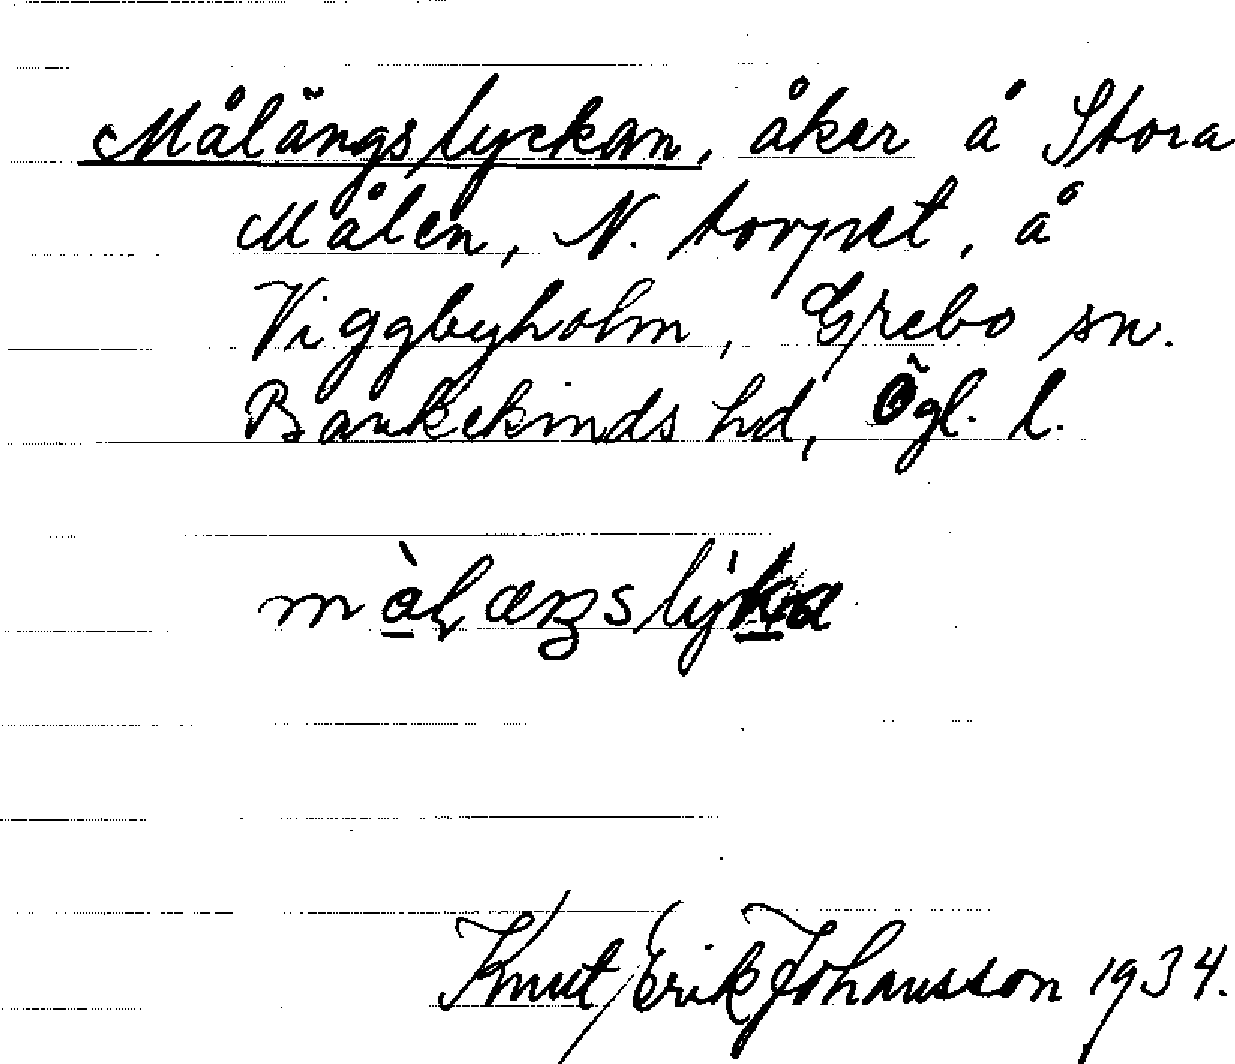 Målängslyckan, åker å Stora
Målen, N. torpet, å
Viggbyholm, Grebo sn.
Bankekinds hd, Ögl. l.
Knut Erik Johansson 1934.